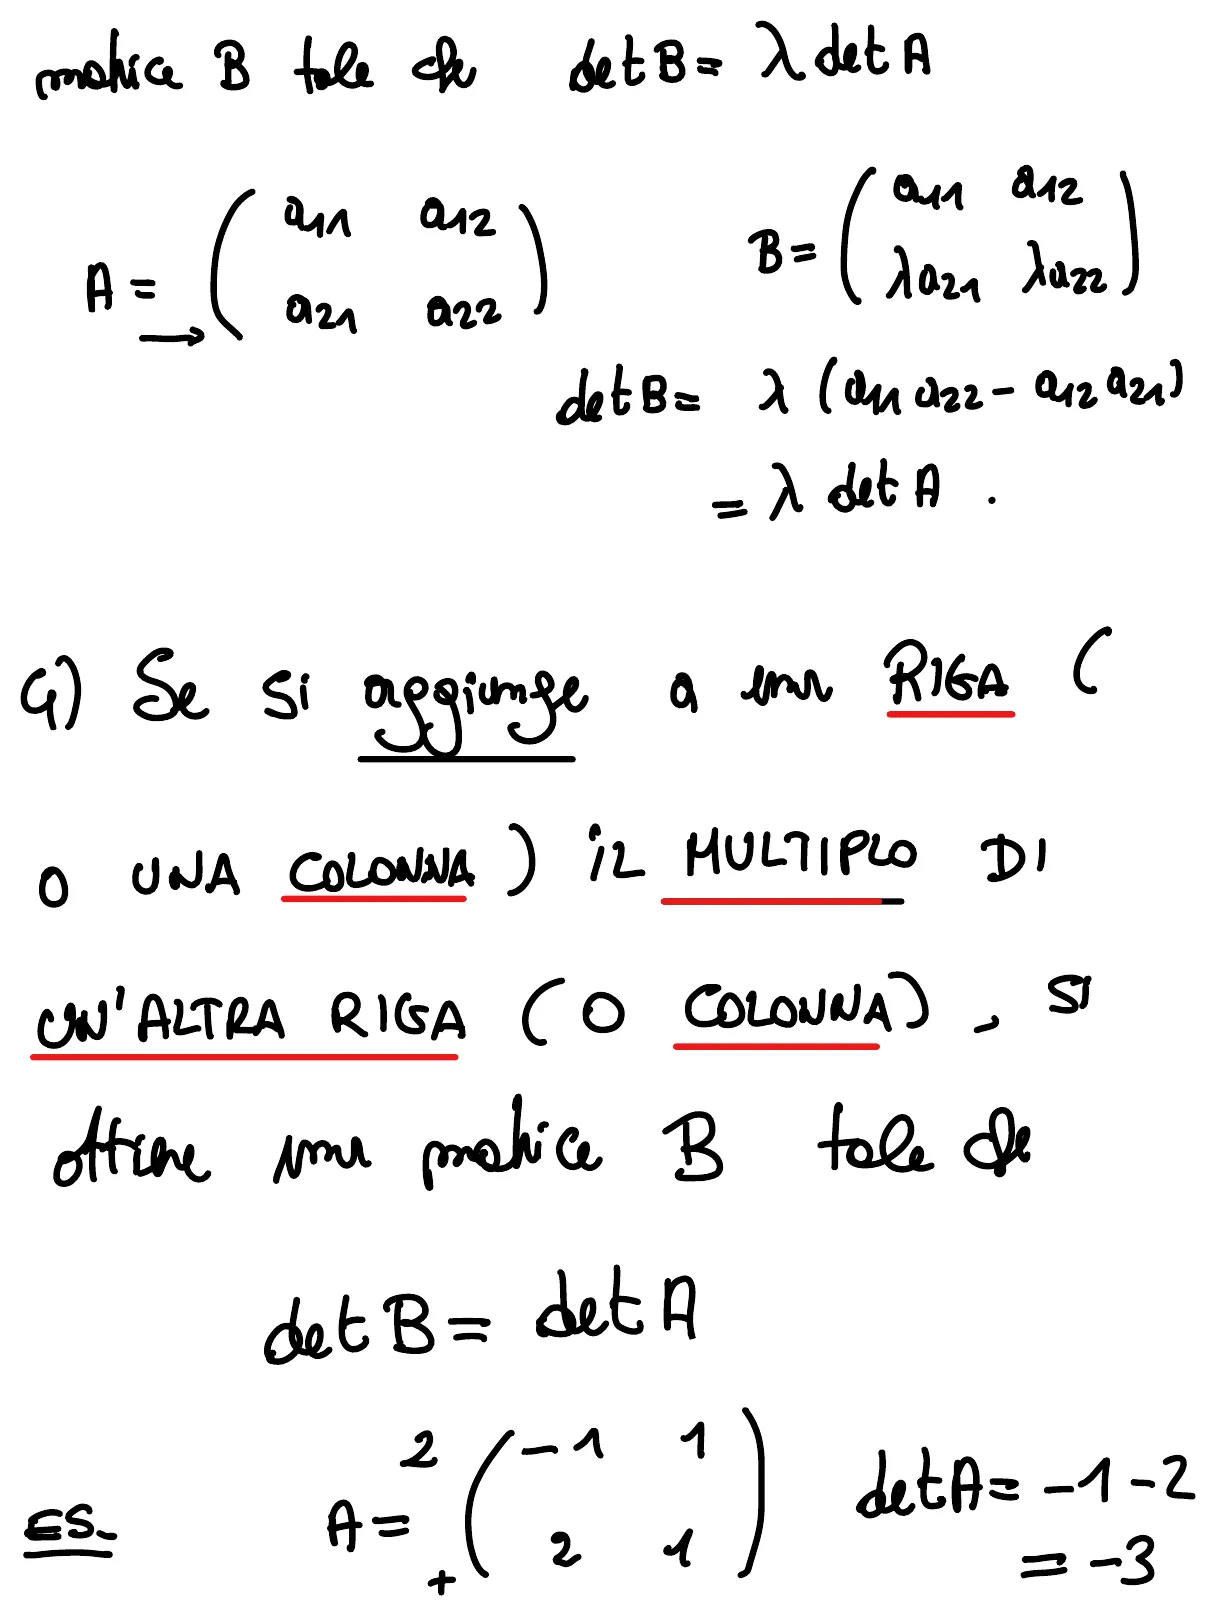 matrice B tale che det B = λ det A
A = ( a11 a12 B = ( a11 a12 )
a21 a22 ) λa21 λa22 )
det B = λ (a11 a22 - a12 a21)
= λ det A .
4) Se si aggiunge a una RIGA (
O UNA COLONNA ) IL MULTIPLO DI
UN'ALTRA RIGA (O COLONNA), SI
ottiene una matrice B tale che
det B = det A
2 ( -1 1 ) det A = -1 -2
ES. A = + ( 2 1 ) = -3